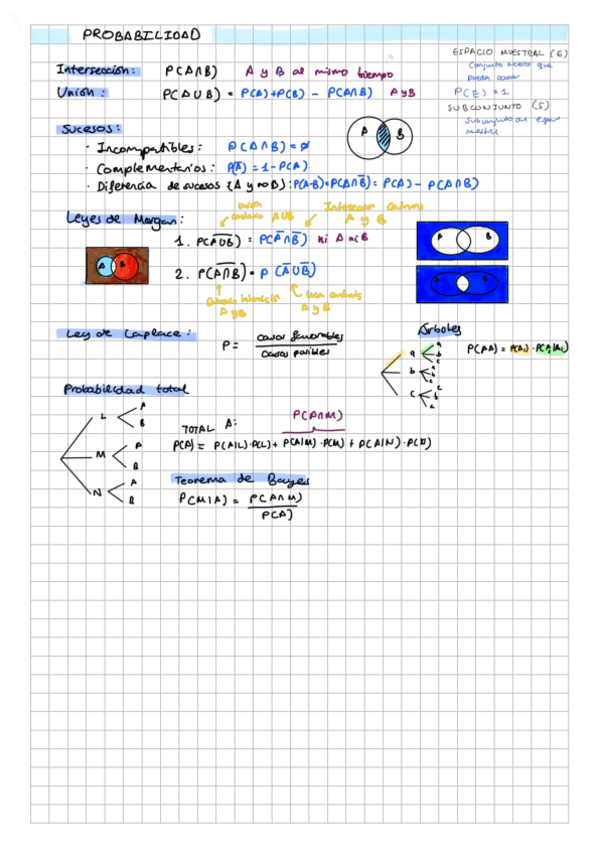 PROBABILIDAD
ESPACIO MUESTRAL (E)
Conjunto sucesos que
pueda ocurrir
P(E) = 1
SUBCONJUNTO (S)
Subconjunto del espacio
muestral
Intersección: P(A∩B) A y B al mismo tiempo
Unión: P(A∪B) = P(A)+P(B) - P(A∩B) A y B
A B
Sucesos:
· Incompatibles: P(A∩B) = ∅
· Complementarios: P(A̅) = 1 - P(A)
· Diferencia de sucesos (A y no B): P(A-B) = P(A∩B̅) = P(A) - P(A∩B)
Leyes de Morgan:
unión
contrario A∪B
Intersección contrario
A y B
1. P(A̅∪̅B̅) = P(A̅∩B̅) ni A ni B
2. P(A̅∩̅B̅) = P(A̅∪B̅)
Contrario intersección
A y B
Unión contrario
A y B
A B
A B
A B
Ley de Laplace:
P = casos favorables / casos posibles
Árboles
a b c
P(AA) = P(A₁) · P(A₂|A₁)
Probabilidad total
L A B
M A B
N A B
TOTAL A:
P(A∩M)
P(A) = P(A|L)·P(L) + P(A|M)·P(M) + P(A|N)·P(N)
Teorema de Bayes
P(M|A) = P(A∩M) / P(A)